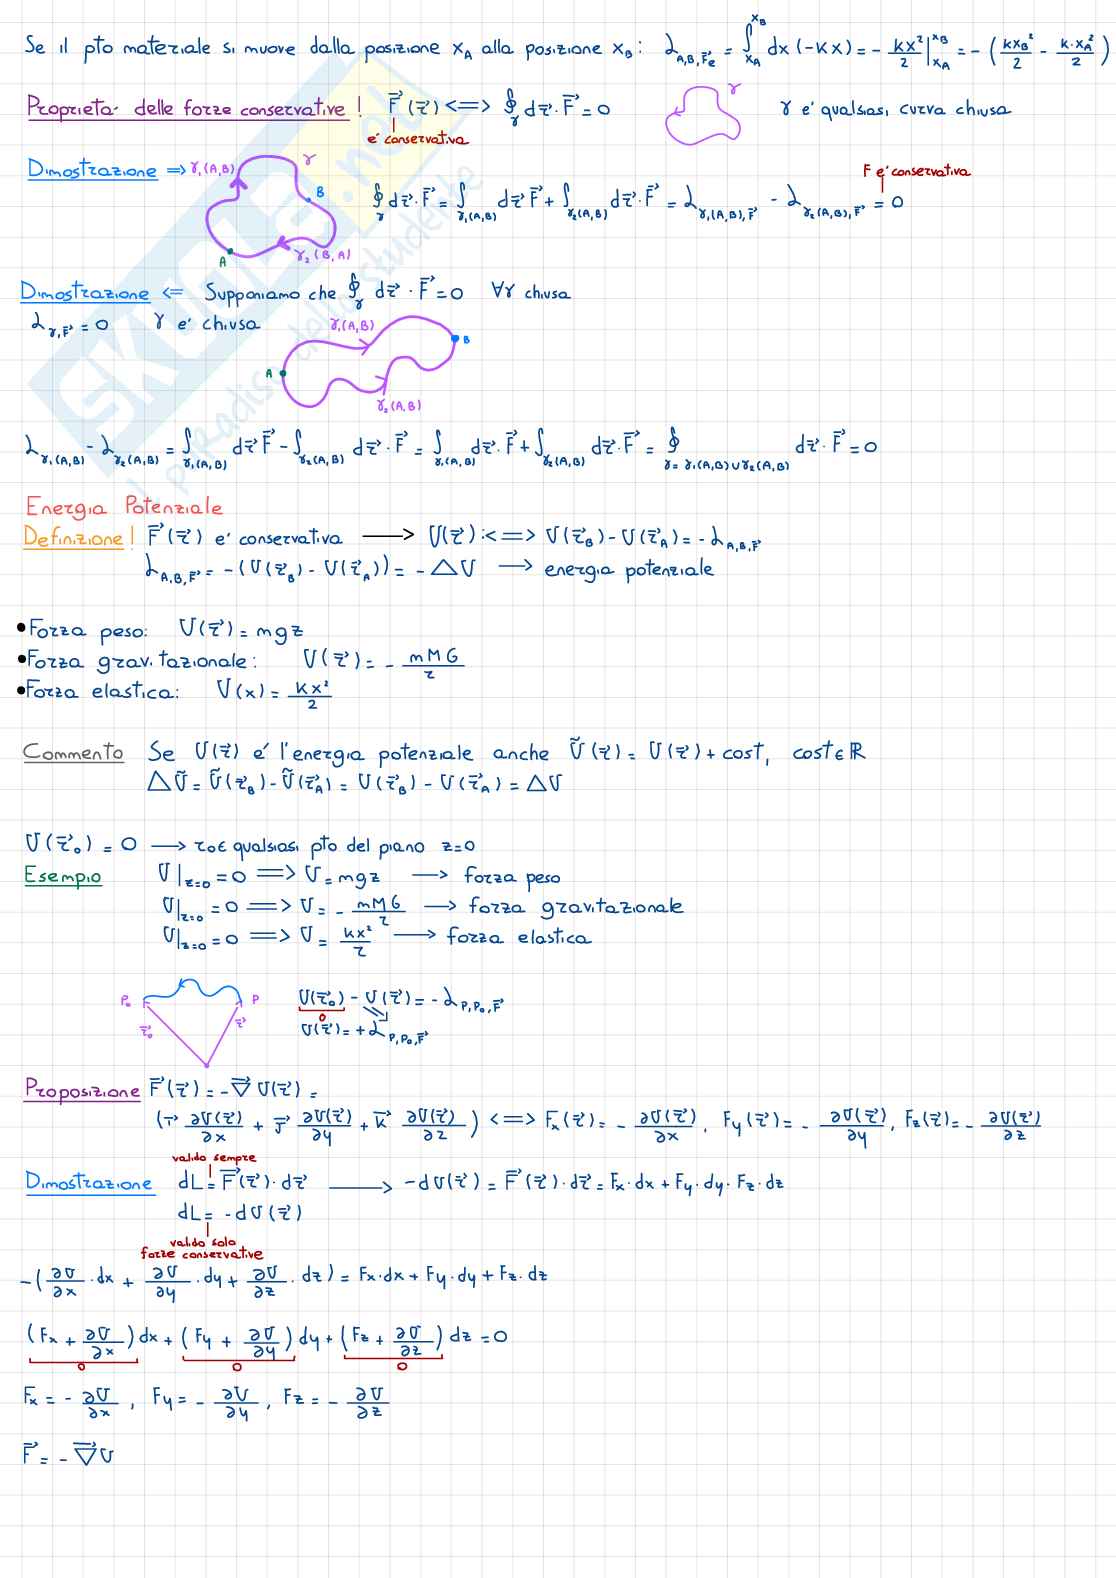 Se il pto materiale si muove dalla posizione x_A alla posizione x_B: L_{A,B,F⃗e} = ∫_{x_A}^{x_B} dx (-Kx) = - kx²/2 |_{x_A}^{x_B} = - ( kx_B²/2 - k·x_A²/2 )
Proprieta' delle forze conservative! F⃗(r⃗) <=> ∮_γ dr⃗·F⃗ = 0 γ γ e' qualsiasi curva chiusa
e' conservativa
Dimostrazione => γ₁(A,B) γ B A γ₂(B,A)
F e' conservativa
∮_γ dr⃗·F⃗ = ∫_{γ₁(A,B)} dr⃗ F⃗ + ∫_{γ₂(A,B)} dr⃗·F⃗ = L_{γ₁(A,B),F⃗} - L_{γ₂(A,B),F⃗} = 0
Dimostrazione <= Supponiamo che ∮_γ dr⃗·F⃗ = 0 ∀γ chiusa
L_{γ,F⃗} = 0 γ e' chiusa γ₁(A,B) B
A γ₂(A,B)
L_{γ₁(A,B)} - L_{γ₂(A,B)} = ∫_{γ₁(A,B)} dr⃗ F⃗ - ∫_{γ₂(A,B)} dr⃗·F⃗ = ∫_{γ₁(A,B)} dr⃗·F⃗ + ∫_{γ₂(A,B)} dr⃗·F⃗ = ∮_{γ = γ₁(A,B)∪γ₂(A,B)} dr⃗·F⃗ = 0
Energia Potenziale
Definizione! F⃗(r⃗) e' conservativa ⟶ U(r⃗) :<=> U(r⃗_B) - U(r⃗_A) = - L_{A,B,F⃗}
L_{A,B,F⃗} = -(U(r⃗_B) - U(r⃗_A)) = - ΔU ⟶ energia potenziale
•Forza peso: U(r⃗) = mgz
•Forza gravitazionale: U(r⃗) = - mMG/r
•Forza elastica: U(x) = Kx²/2
Commento Se U(r⃗) e' l'energia potenziale anche Ũ(r⃗) = U(r⃗) + cost, cost ∈ ℝ
ΔŨ = Ũ(r⃗_B) - Ũ(r⃗_A) = U(r⃗_B) - U(r⃗_A) = ΔU
U(r⃗₀) = 0 ⟶ r₀ ∈ qualsiasi pto del piano z=0
Esempio U|_{z=0} = 0 => U = mgz ⟶ forza peso
U|_{z=0} = 0 => U = - mMG/r ⟶ forza gravitazionale
U|_{z=0} = 0 => U = kx²/2 ⟶ forza elastica
P₀ P r⃗₀ r⃗ U(r⃗₀) - U(r⃗) = - L_{P,P₀,F⃗}
0
U(r⃗) = + L_{P,P₀,F⃗}
Proposizione F⃗(r⃗) = -∇⃗ U(r⃗) =
(i⃗ ∂U(r⃗)/∂x + j⃗ ∂U(r⃗)/∂y + k⃗ ∂U(r⃗)/∂z) <=> Fx(r⃗) = - ∂U(r⃗)/∂x, Fy(r⃗) = - ∂U(r⃗)/∂y, Fz(r⃗) = - ∂U(r⃗)/∂z
valido sempre
Dimostrazione dL = F⃗(r⃗)·dr⃗ ⟶ -dU(r⃗) = F⃗(r⃗)·dr⃗ = Fx·dx + Fy·dy· Fz·dz
dL = -dU(r⃗)
valido solo
forze conservative
-( ∂U/∂x ·dx + ∂U/∂y ·dy + ∂U/∂z ·dz ) = Fx·dx + Fy·dy + Fz·dz
( Fx + ∂U/∂x ) dx + ( Fy + ∂U/∂y ) dy + ( Fz + ∂U/∂z ) dz = 0
0 0 0
Fx = - ∂U/∂x , Fy = - ∂U/∂y , Fz = - ∂U/∂z
F⃗ = - ∇⃗U
SKUOLA.net
il paradiso dello studente